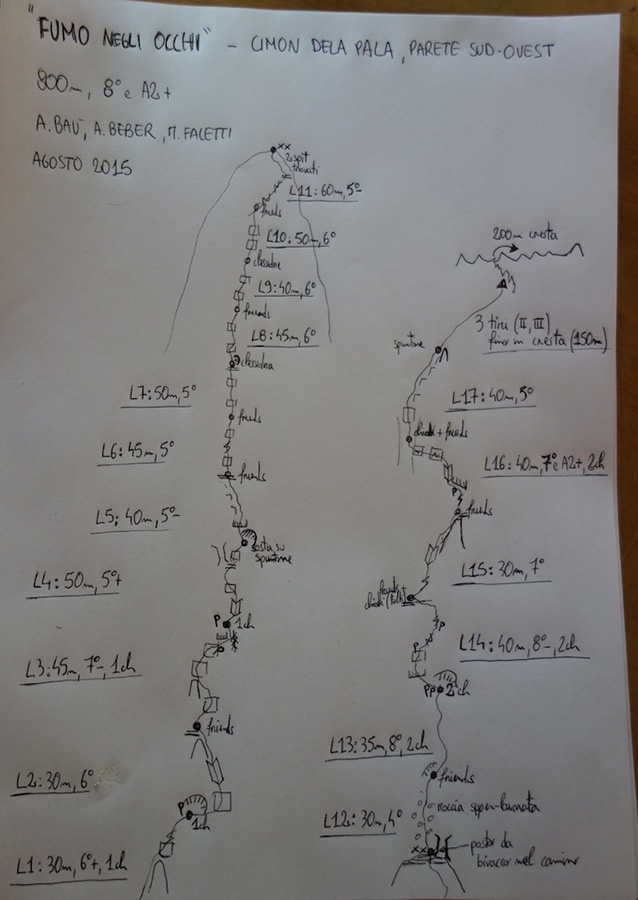 "FUMO NEGLI OCCHI" - CIMON DELA PALA, PARETE SUD-OVEST
800m, 8° e A2+
A. BAÙ, A. BEBER, M. FALETTI
AGOSTO 2015
xx
2 spit
trovati
L11: 60m, 5°-
friends
L10: 50m, 6°
clessidra
L9: 40m, 6°
friends
L8: 45m, 6°
clessidra
L7: 50m, 5°
friends
L6: 45m, 5°
friends
L5: 40m, 5°-
sosta su
spuntone
L4: 50m, 5°+
P
1ch
L3: 45m, 7°-, 1ch
friends
L2: 30m, 6°
P
1ch
L1: 30m, 6°+, 1ch
200m cresta
3 tiri (II, III)
fino in cresta (150m)
spuntone
L17: 40m, 5°
chiodi + friends
L16: 40m, 7° e A2+, 2ch
friends
L15: 30m, 7°
friends +
P
L14: 40m, 8°-, 2ch
P
PP
2ch
L13: 35m, 8°, 2ch
friends
roccia super-lavorata
L12: 30m, 4°
xx
posto da
bivacco nel camino